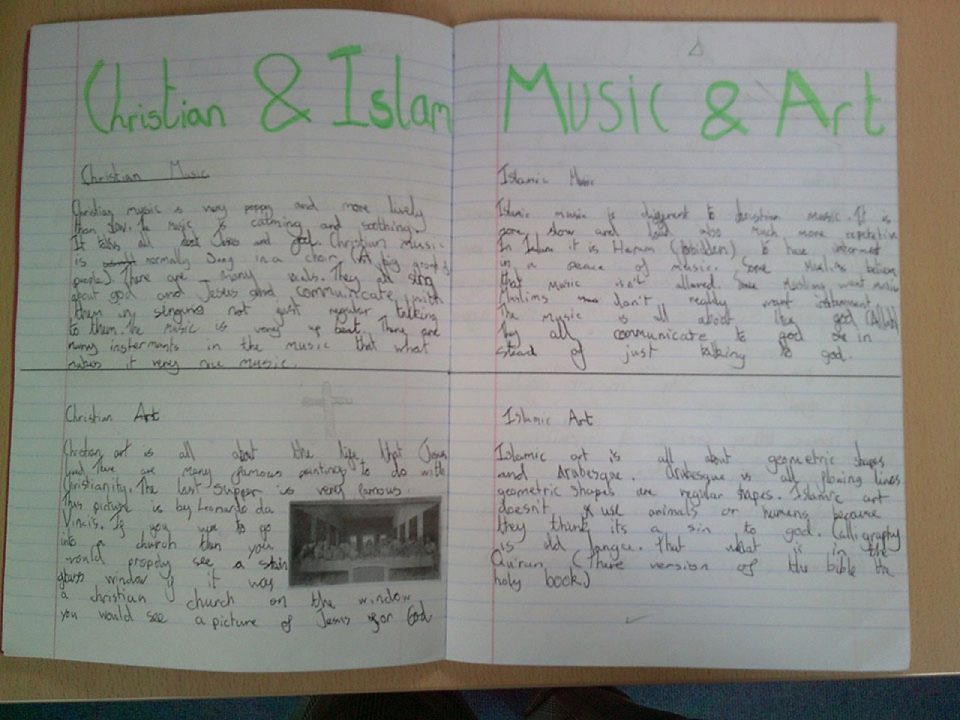 Christian & Islam Music & Art
Christian Music
Christian mysic is very poppy and more lively
than slow. The music is calming and soothing.
It talks all about Jesus and god. Christian music
is normally sung in a choir (big group of
people). There are many vocals. They all sing
about god and Jesus and communicate with
them in singing not just regular talking
to them. The music is very up beat. There are
many insterments in the music that what
makes it very nice music.
Islamic Music
Islamic music is different to christian music. It is
more slow and also much more repetative
In Islam it is Haram (forbidden) to have
in a peace of music. Some Muslims believe
that music isn't allowed. Some Muslims want music
Muslims don't really want
The music is all about they god (Allah)
They all communicate to god in
stead of just talking to god.
Christian Art
Christian art is all about the life that Jesus
lived. There are many famous paintings to do with
Christianity. The last supper is very famous.
This picture is by Leonardo da
Vincis. If you were to go
into a church then you
would see a stain
glass window if it was
a christian church on the window
you would see a picture of Jesus or God
Islamic Art
Islamic art is all about geometric shapes
and Arabesque. Arabesque is all flowing lines
geometric shapes are regular shapes. Islamic art
doesn't use animals or humans because
they think its a sin to god. Calligraphy
is old . That what is in the
Qu'ran (There version of the bible the
holy book)